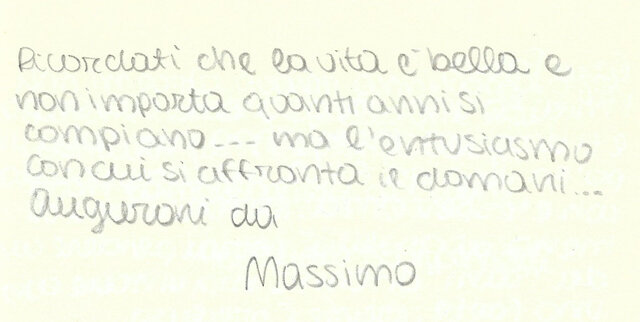 Ricordati che la vita è bella e
non importa quanti anni si
compiano... ma l'entusiasmo
con cui si affronta il domani...
Auguroni da
Massimo